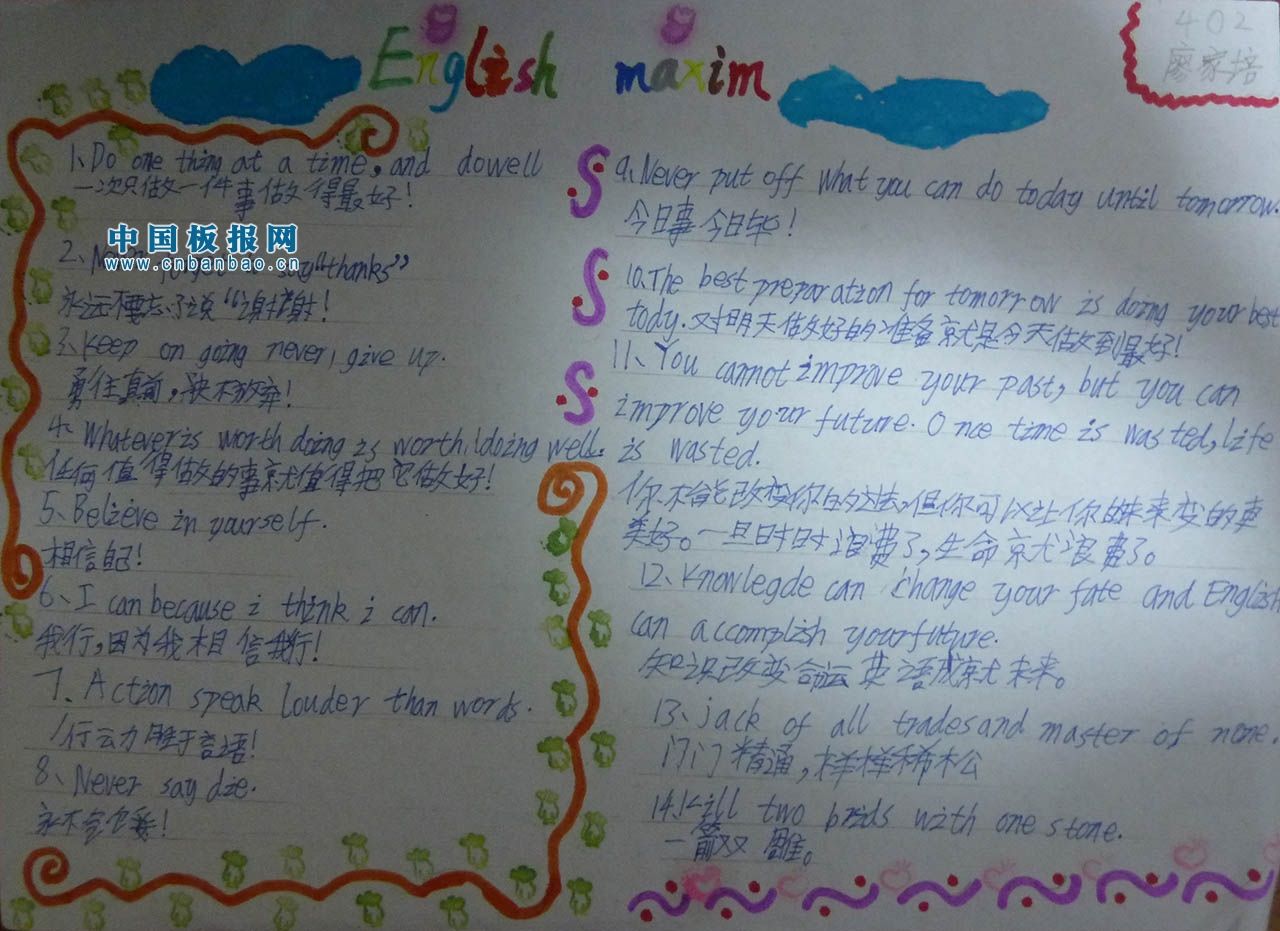 English maxim
402
廖家培
1、Do one thing at a time, and dowell
一次只做一件事做得最好！
中国板报网
www.cnbanbao.cn
2、 say“thanks”
永远不要忘了说“谢谢！
3、keep on going never, give up.
勇往直前，决不放弃！
4、Whatever is worth doing is worth doing well.
任何值得做的事就值得把它做好！
5、Believe in yourself.
相信自己！
6、I can because i think i can.
我行，因为我相信我行！
7、Action speak louder than words.
行动胜于言语！
8、Never say die.
永不
9、Never put off what you can do today until tomorrow.
今日事今日毕！
10、The best preparation for tomorrow is doing your best
tody. 对明天做好的准备就是今天做到最好！
11、You cannot improve your past, but you can
improve your future. Once time is wasted, life
is wasted.
你不能改变你的过去，但你可以让你的未来变的更
美好。一旦时时浪费了，生命就浪费了。
12、Knowlegde can change your fate and English
can accomplish your future.
知识改变命运英语成就未来。
13、jack of all trades and master of none.
门门精通，样样稀松
14、Kill two brids with one stone.
一箭双雕。